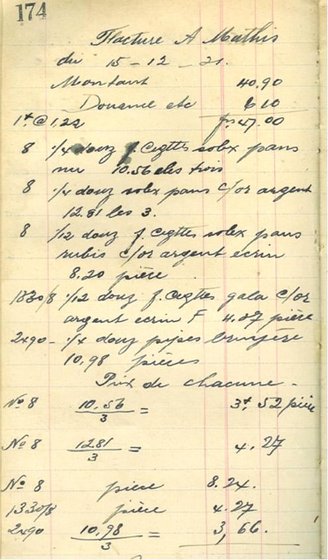 174
Facture A Mathis
du 15-12-21.
Montant 40.90
Douane etc 6 10
1f @ 1,22 frs 47.00
8 1/4 douz f. cigttes rolex pans
nu 10.56 les trois
8 1/4 douz rolex pans c/or argent
12.81 les 3.
8 1/12 douz f. cigttes rolex pans
rubis c/or argent écrin
8.20 pièce
1330/8 1/12 douz f. cigttes gala c/or
argent écrin F 4.27 pièce
2490 - 1/4 douz pipes bruyère
10,98 pièces
Prix de chacune -
No 8 10.56/3 = 3f 52 pièce
No 8 12.81/3 = 4.27
No 8 pièce 8.24.
1330/8 pièce 4.27
2490 10,98/3 = 3,66.